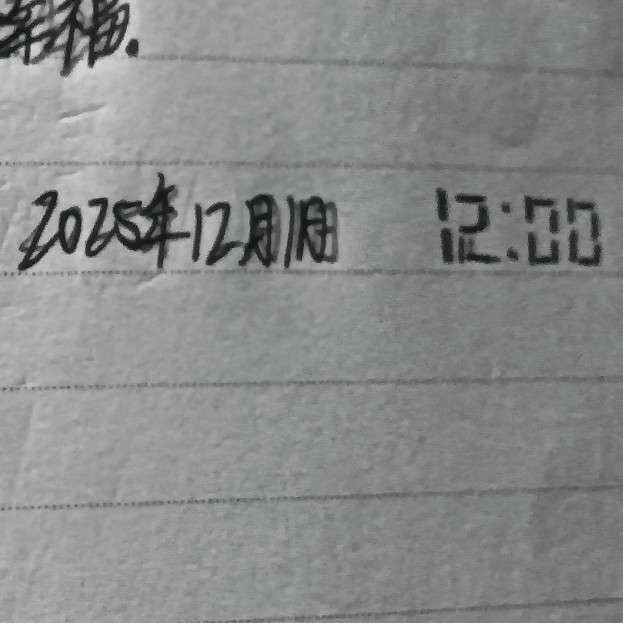 幸福.
2025年12月1周 12:00